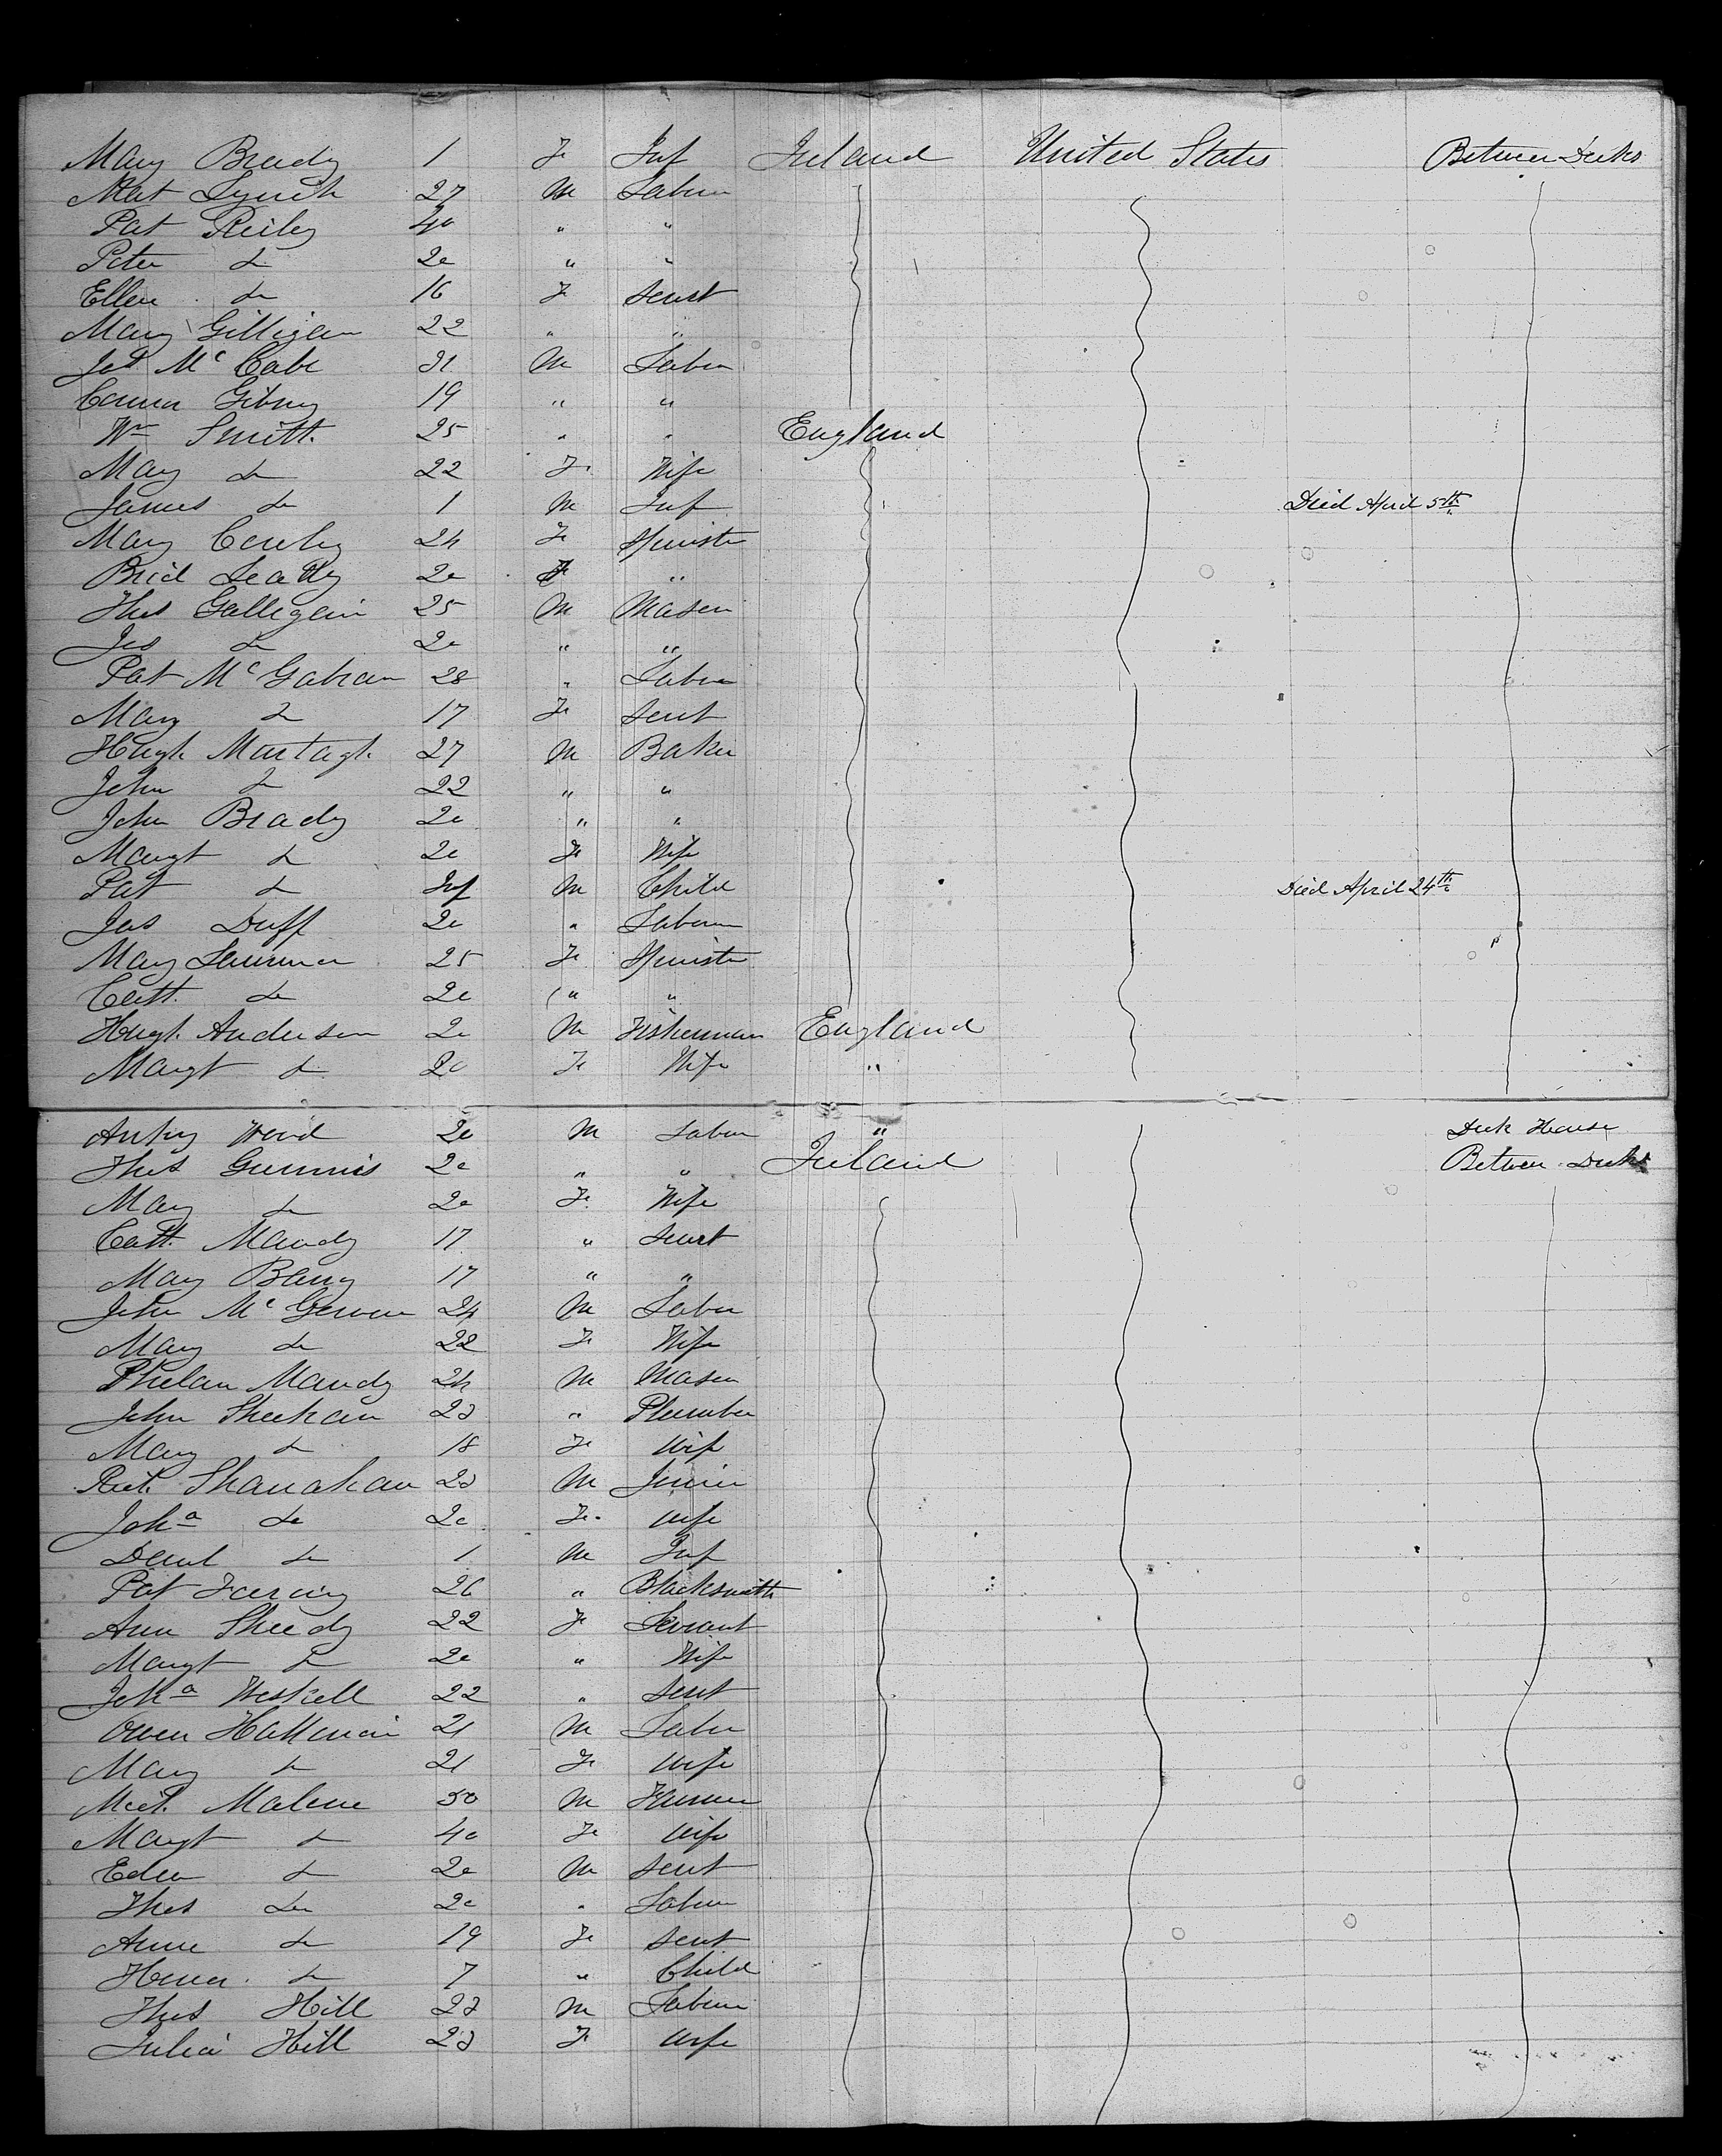 Mary Brady 1 F Inf Ireland United States Between Decks
Mat Lynch 27 M Labour
Pat Reiley 40 " "
Peter do 20 " "
Ellen do 16 F Servt
Mary Gilligan 22 " "
Jas Mc Cabe 21 M Labour
Connor Gibney 19 " "
Wm Smith 25 " " England
Mary do 22 F Wife
James do 1 M Inf Died April 5th
Mary 24 F Spinster
Brid Leddy 20 F "
Thos Galligan 25 M Mason
Jas do 20 " "
Pat Mc Gahan 28 " Labour
Mary do 17 F Servt
Hugh Murtagh 27 M Baker
John do 22 " "
John Brady 20 " "
Margt do 20 F Wife
Pat do Inf M Child Died April 24th
Jas Duff 20 " Labour
Mary 25 F Spinster
Cath. do 20 " "
Hugh Anderson 20 M Fisherman England
Margt do 20 F Wife "
20 M Labour " Deck House
Thos 20 " " Ireland Between Decks
Mary do 20 F Wife
Cath. Maudy 17 " Servt
Mary Barry 17 " "
John Mc Gowan 24 M Labor
Mary do 22 F Wife
Phelan Maudy 24 M Mason
John Sheehan 23 " Plumber
Mary do 18 F Wife
Rich. Shanahan 23 M Joiner
Joha do 20 F Wife
Danl do 1 M Inf
Pat 26 " Blacksmith
Ann Sheedy 22 F Servant
Margt do 20 " Wife
Joha 22 " Servt
Owen 21 M Labor
Mary do 21 F Wife
Mich. Malone 50 M Farmer
Margt do 40 F Wife
do 20 M Servt
Thos do 20 " Labour
Anne do 19 F Servt
Honor. do 7 " Child
Thos Hill 23 M Labour
Julia Hill 23 F Wife